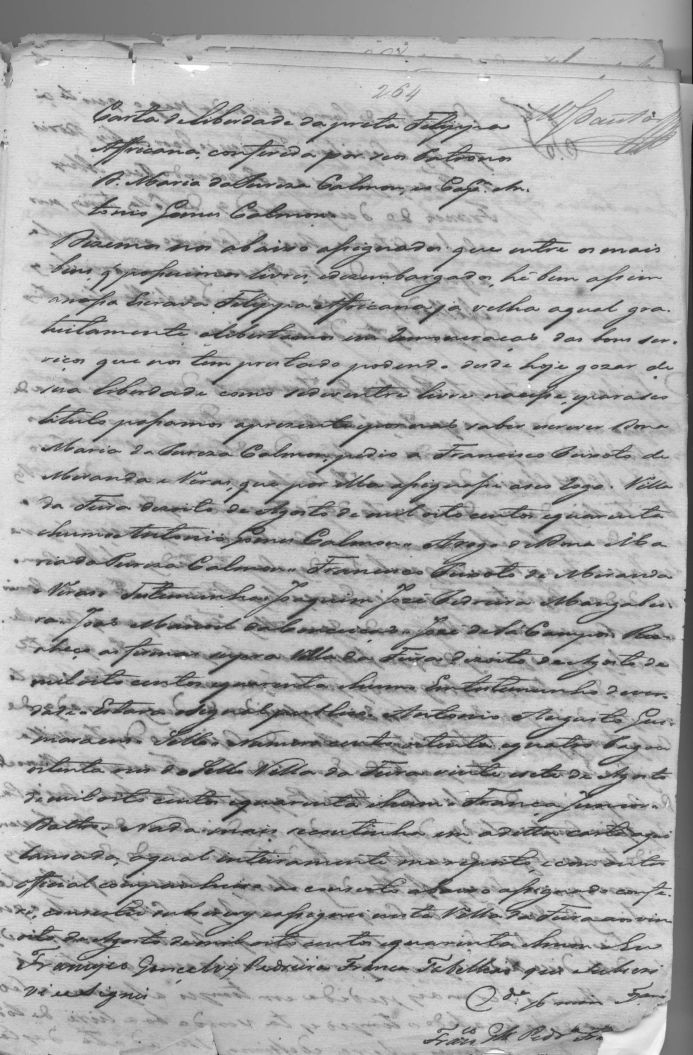 264
Carta de liberdade da preta Felippa
Affricana, conferida por seos Patronos
D. Maria da Pureza Calmon, e Capm. An-
tonio Gomes Calmon
Dizemos nos abaixo assignados que entre os mais
bens q possuimos livres, e dezembargados, hé bem assim
nossa Escrava Felippa Affricana já velha a qual gra-
tuitamente libertamos em remuneração dos bons ser-
viços que nos tem prestado podendo desde hoje gozar de
sua liberdade como se de ventre livre nacesse, e para seo
titulo passamos a prezente, e por não saber escrever Dona
Maria da Pureza Calmon, pedio a Francisco Peixoto de
Miranda e Veras, que por ella assignasse a seo rogo. Villa
da Feira dezoito de Agosto de mil oito centos e quarenta
e hum Antonio Gomes Calmon. Arogo de Dona Ma
ria da Pureza Calmon Francisco Peixoto de Miranda
e Veras. Testemunhas Joaquim José Pedreira Mangabei-
ra José Manoel da Conceicao José de Sá Campos Reco-
nheço as firmas supra Villa da Feira dezoito de Agosto de
mil oito centos e quarenta e hum Em testemunho de ver-
dade Estava o signal publico Antonio Augusto Gui-
maraens. Sello Numero cento oitenta e quatro Pagou
oitenta reis do Sello Villa da Feira vinte sete de Agosto
de mil oito centos quarenta e hum. França Junior.
Bastos. Nada mais se continha em a ditta carta aqui
lansada, a qual inteiramente me reporto, e com outro
official companheiro ao concerto abaixo assignado confe-
ri, concertei subscrevy e assignei nesta Villa da Feira aos vin
te oito de Agosto de mil oito centos e quarenta e hum. Eu
Francisco Gonçalves Pedreira França Tabelliao que o subscri
vi e assignei